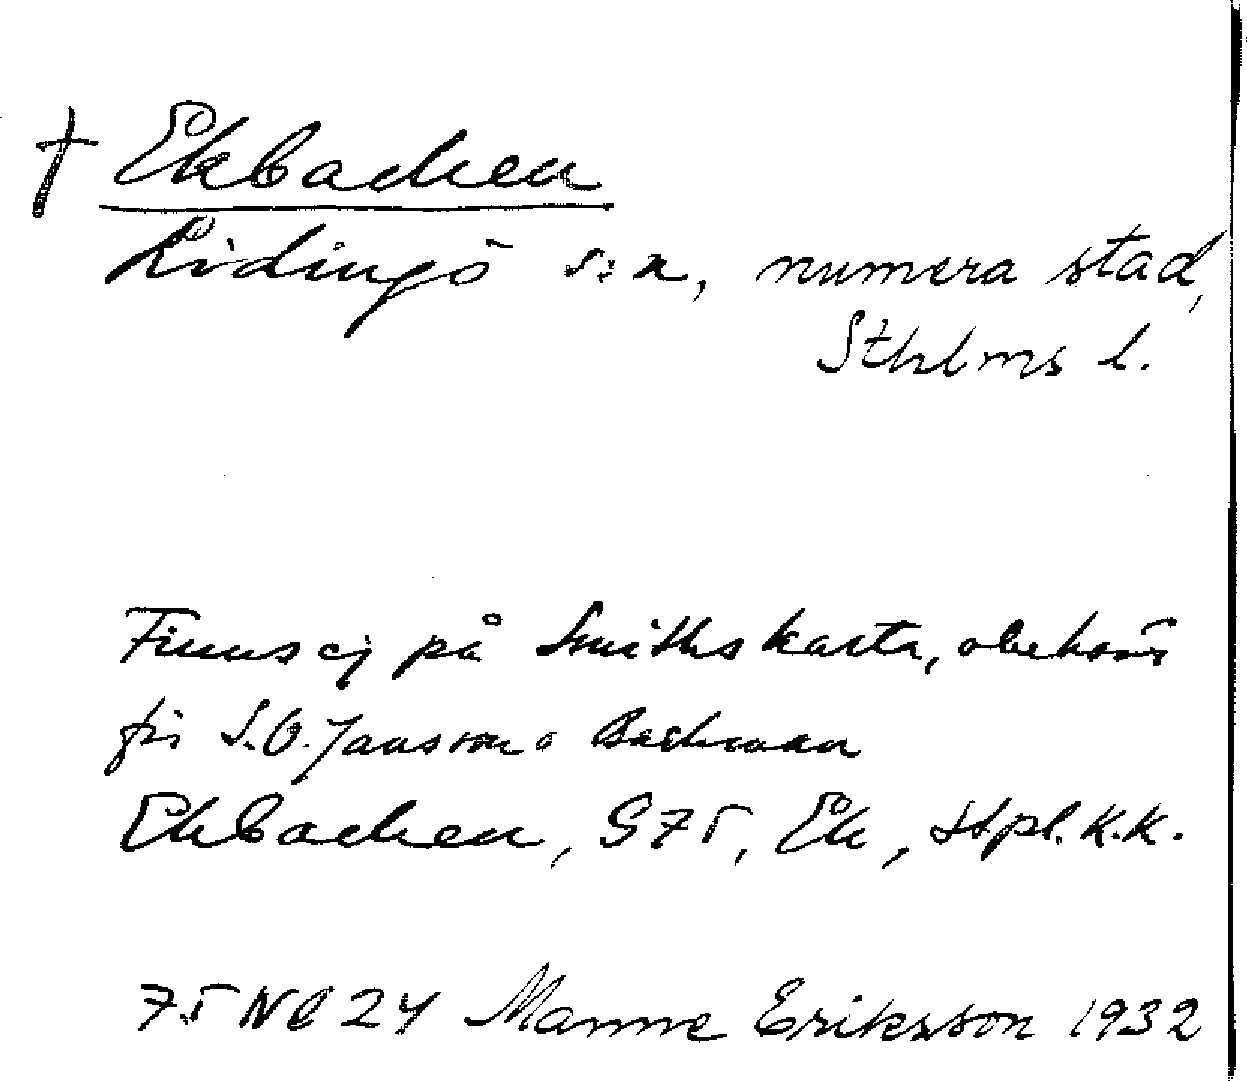 † Ekbacken
Lidingö s:n, numera stad,
Sthlms l.
Finns ej på Smiths karta, obekant
för S.O. Jansson o Backman
Ekbacken, G75, Ek, Stpl. K.K.
75 NE 24 Manne Eriksson 1932